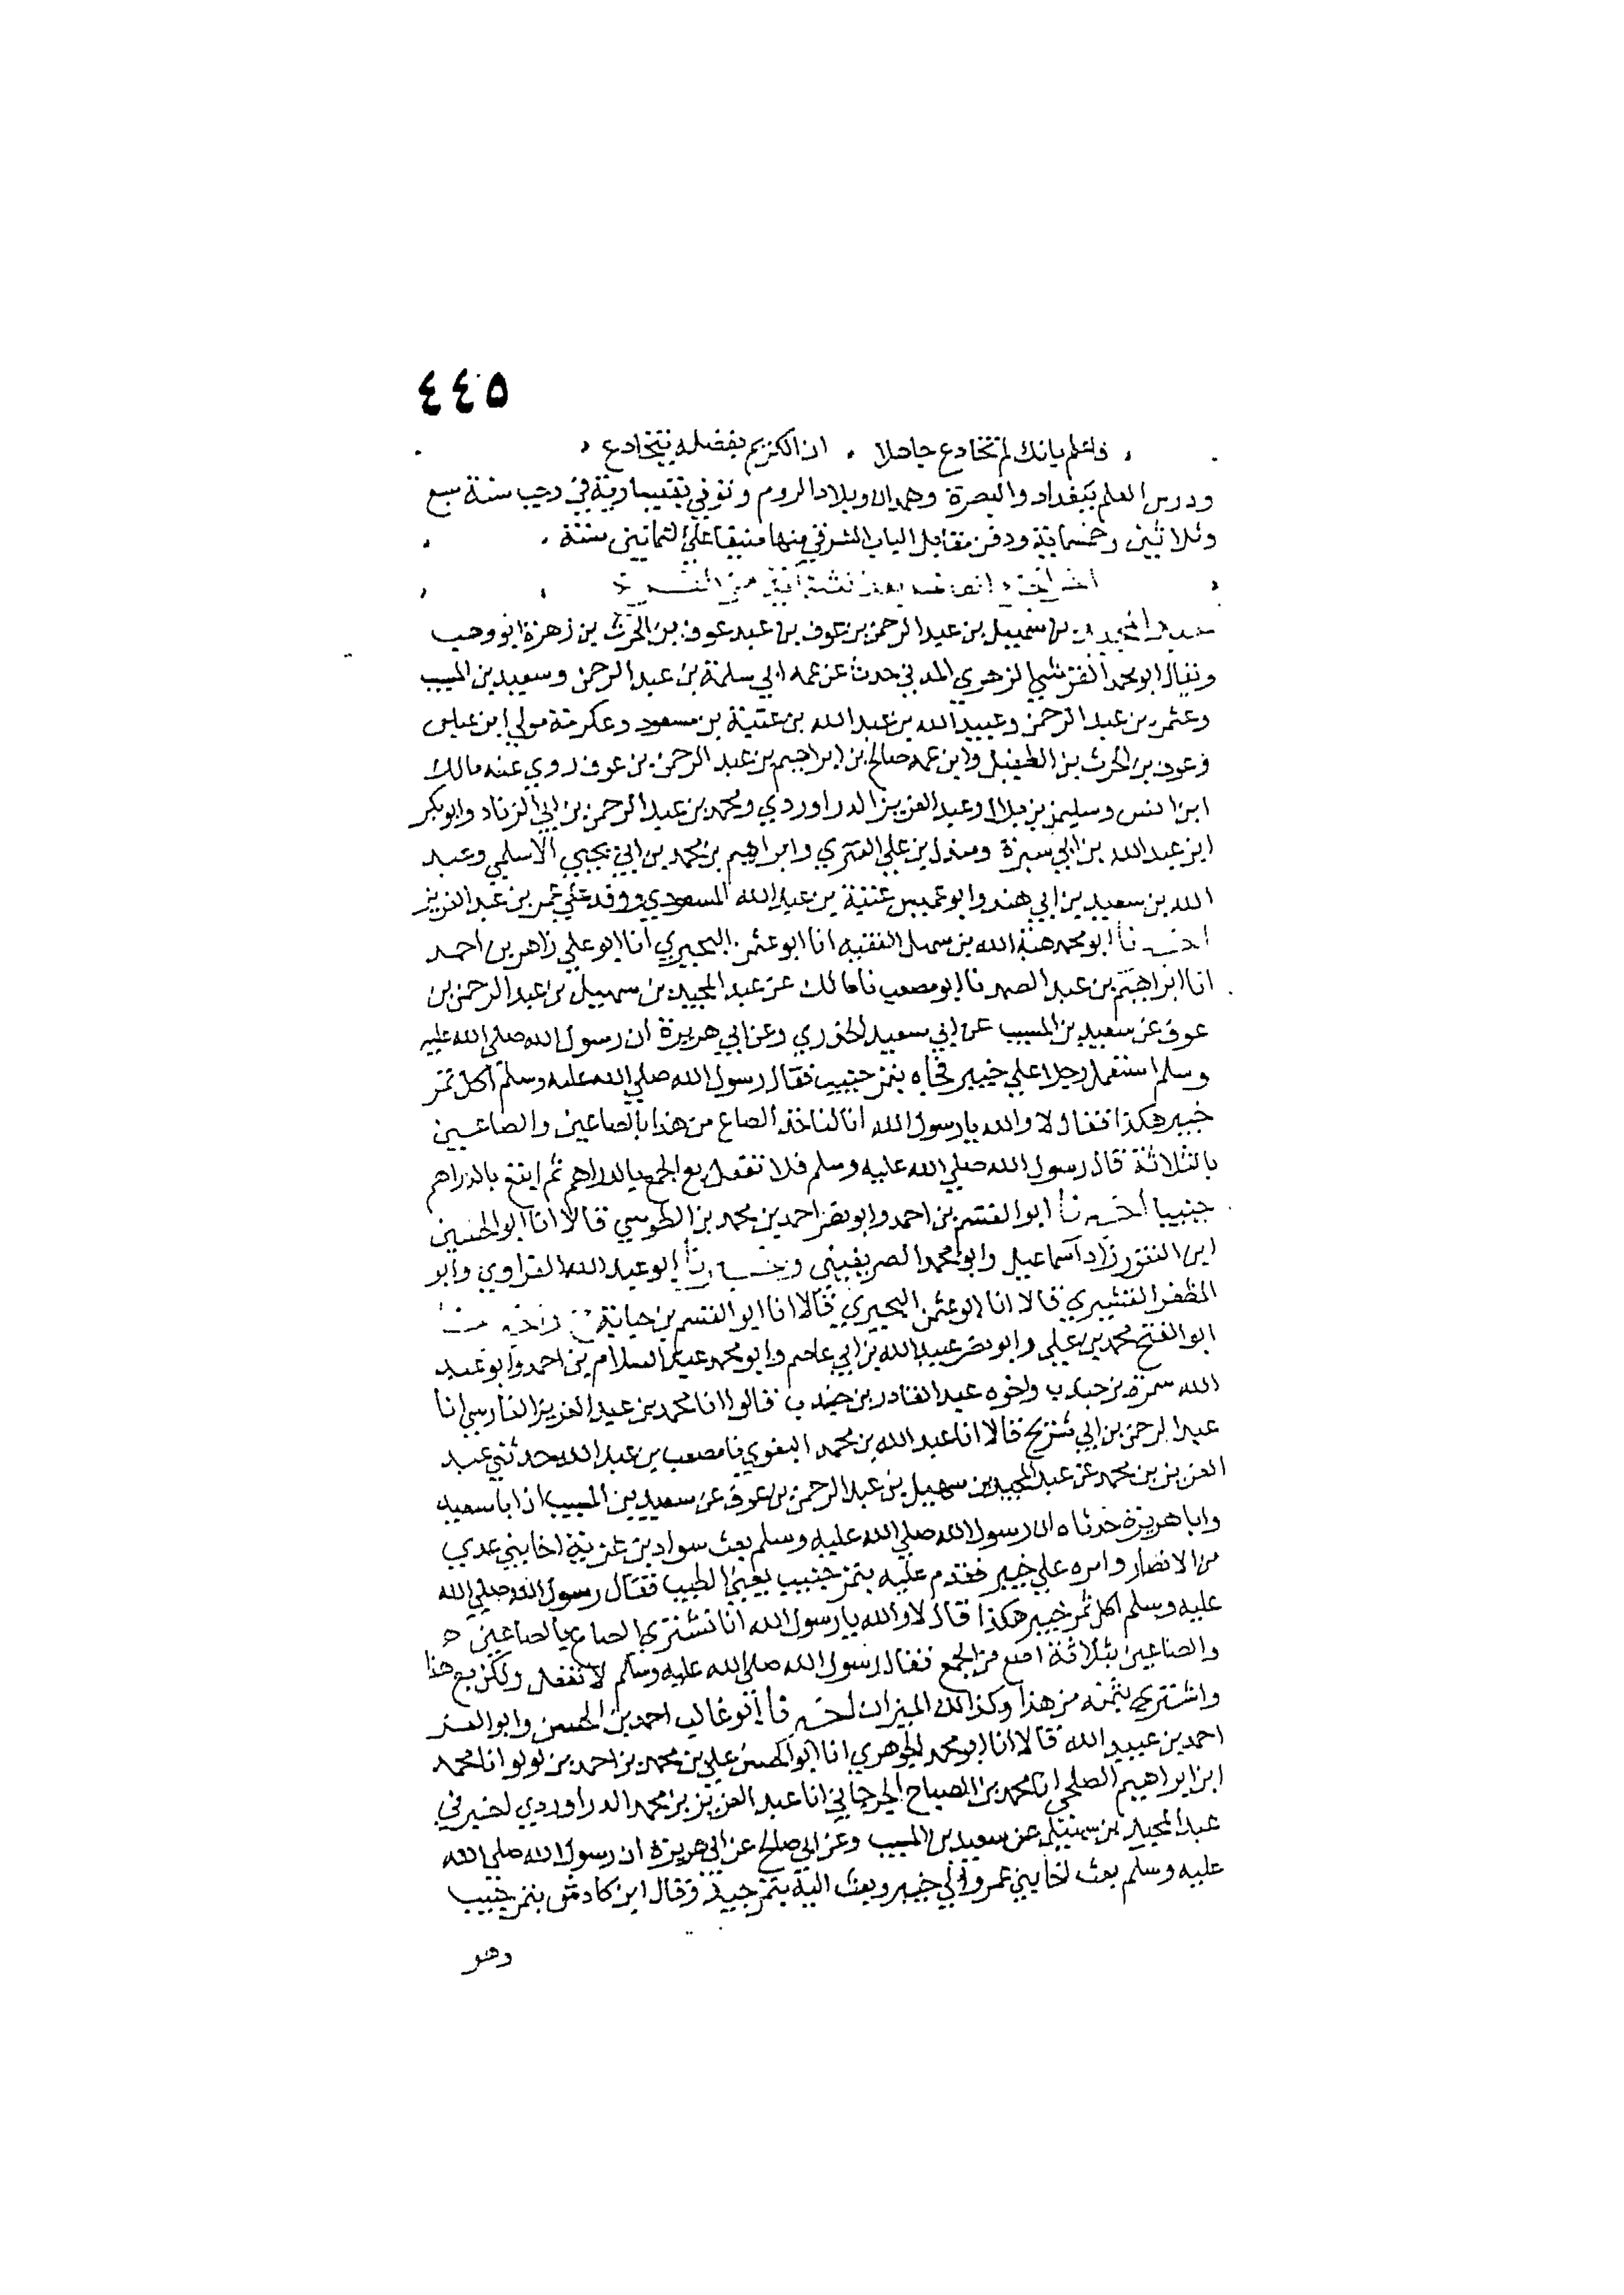 ٤٤٥
فاعلم بانك لم تخادع جاهلا ، ان الكريم بفضله يتخادع ،
ودرس العلم ببغداد والبصرة وهمدان وبلاد الروم وتوفي بقيسارية في رجب سنة سبع
وثلاثين وخمسماية ودفن مقابل الباب الشرقي منها منيفا على الثمانين سنة
اخر الجزء
عبد المجيد بن سهيل بن عبد الرحمن بن عوف بن عبد عوف بن الحرث بن زهرة ابو وهب
ويقال ابو محمد القرشي الزهري المدني حدث عن عمه ابي سلمة بن عبد الرحمن وسعيد بن المسيب
وعثمن بن عبد الرحمن وعبيد الله بن عبد الله بن عتبة بن مسعود وعكرمة مولي ابن عباس
وعوف بن الحرث بن الطفيل وابن عمه صالح بن ابراهيم بن عبد الرحمن بن عوف روي عنه مالك
ابن انس وسليمن بن بلال وعبد العزيز الدراوردي ومحمد بن عبد الرحمن بن ابي الزناد وابو بكر
ابن عبد الله بن ابي سبرة ومندل بن علي العنزي وابراهيم بن محمد بن ابي يحيي الاسلمي وعبد
الله بن سعيد بن ابي هند وابو عميس عتبة بن عبد الله المسعودي ووفد علي عمر بن عبد العزيز
اخبرنا ابو محمد هبة الله بن سهل الفقيه انا ابو عثمن البحيري انا ابو علي زاهر بن احمد
انا ابراهيم بن عبد الصمد نا ابو مصعب نا مالك عن عبد المجيد بن سهيل بن عبد الرحمن بن
عوف عن سعيد بن المسيب عن ابي سعيد الخدري وعن ابي هريرة ان رسول الله صلي الله عليه
وسلم استعمل رجلا علي خيبر فجاه بتمر جنيب فقال رسول الله صلي الله عليه وسلم اكل تمر
خيبر هكذا فقال لا والله يا رسول الله انا لناخذ الصاع من هذا بالصاعين والصاعين
بالثلاثة قال رسول الله صلي الله عليه وسلم فلا تفعل بع الجمع بالدراهم ثم ابتع بالدراهم
جنيبا اخبرنا ابو القسم بن احمد وابو نصر احمد بن محمد بن الطوسي قالا انا ابو الحسين
ابن النقور زاد اسماعيل وابو محمد الصريفيني واخبرنا ابو عبد الله الفراوي وابو
المظفر القشيري قالا انا ابو عثمن البحيري قالا انا ابو القسم بن حبابة ح واخبرنا
ابو الفتح محمد بن علي وابو نصر عبيد الله بن ابي عاصم وابو محمد عبد السلام بن احمد وابو عبد
الله سمرة بن جندب واخوه عبد القادر بن جندب قالوا انا محمد بن عبد العزيز الفارسي انا
عبد الرحمن بن ابي شريح قالا انا عبد الله بن محمد البغوي نا مصعب بن عبد الله حدثني عبد
العزيز بن محمد عن عبد المجيد بن سهيل بن عبد الرحمن بن عوف عن سعيد بن المسيب ان ابا سعيد
وابا هريرة حدثاه ان رسول الله صلي الله عليه وسلم بعث سواد بن غزية اخا بني عدي
من الانصار وامره علي خيبر فقدم عليه بتمر جنيب يعني الطيب فقال رسول الله صلي الله
عليه وسلم اكل تمر خيبر هكذا قال لا والله يا رسول الله انا نشتري الصاع بالصاعين
والصاعين بثلاثة اصع من الجمع فقال رسول الله صلي الله عليه وسلم لا تفعل ولكن بع هذا
واشتري بثمنه من هذا وكذلك الميزان اخبرنا ابو غالب احمد بن الحسن وابو العز
احمد بن عبيد الله قالا انا ابو محمد الجوهري انا ابو الحسن علي بن محمد بن احمد بن لولو انا محمد
ابن ابراهيم الصلحي انا محمد بن الصباح الجرجاني انا عبد العزيز بن محمد الدراوردي اخبرني
عبد المجيد بن سهيل عن سعيد بن المسيب وعن ابي صالح عن ابي هريرة ان رسول الله صلي الله
عليه وسلم بعث اخا بني عمرو الي خيبر وبعث اليه بتمر جيد وقال ابن كادش بتمر جنيب
وهو